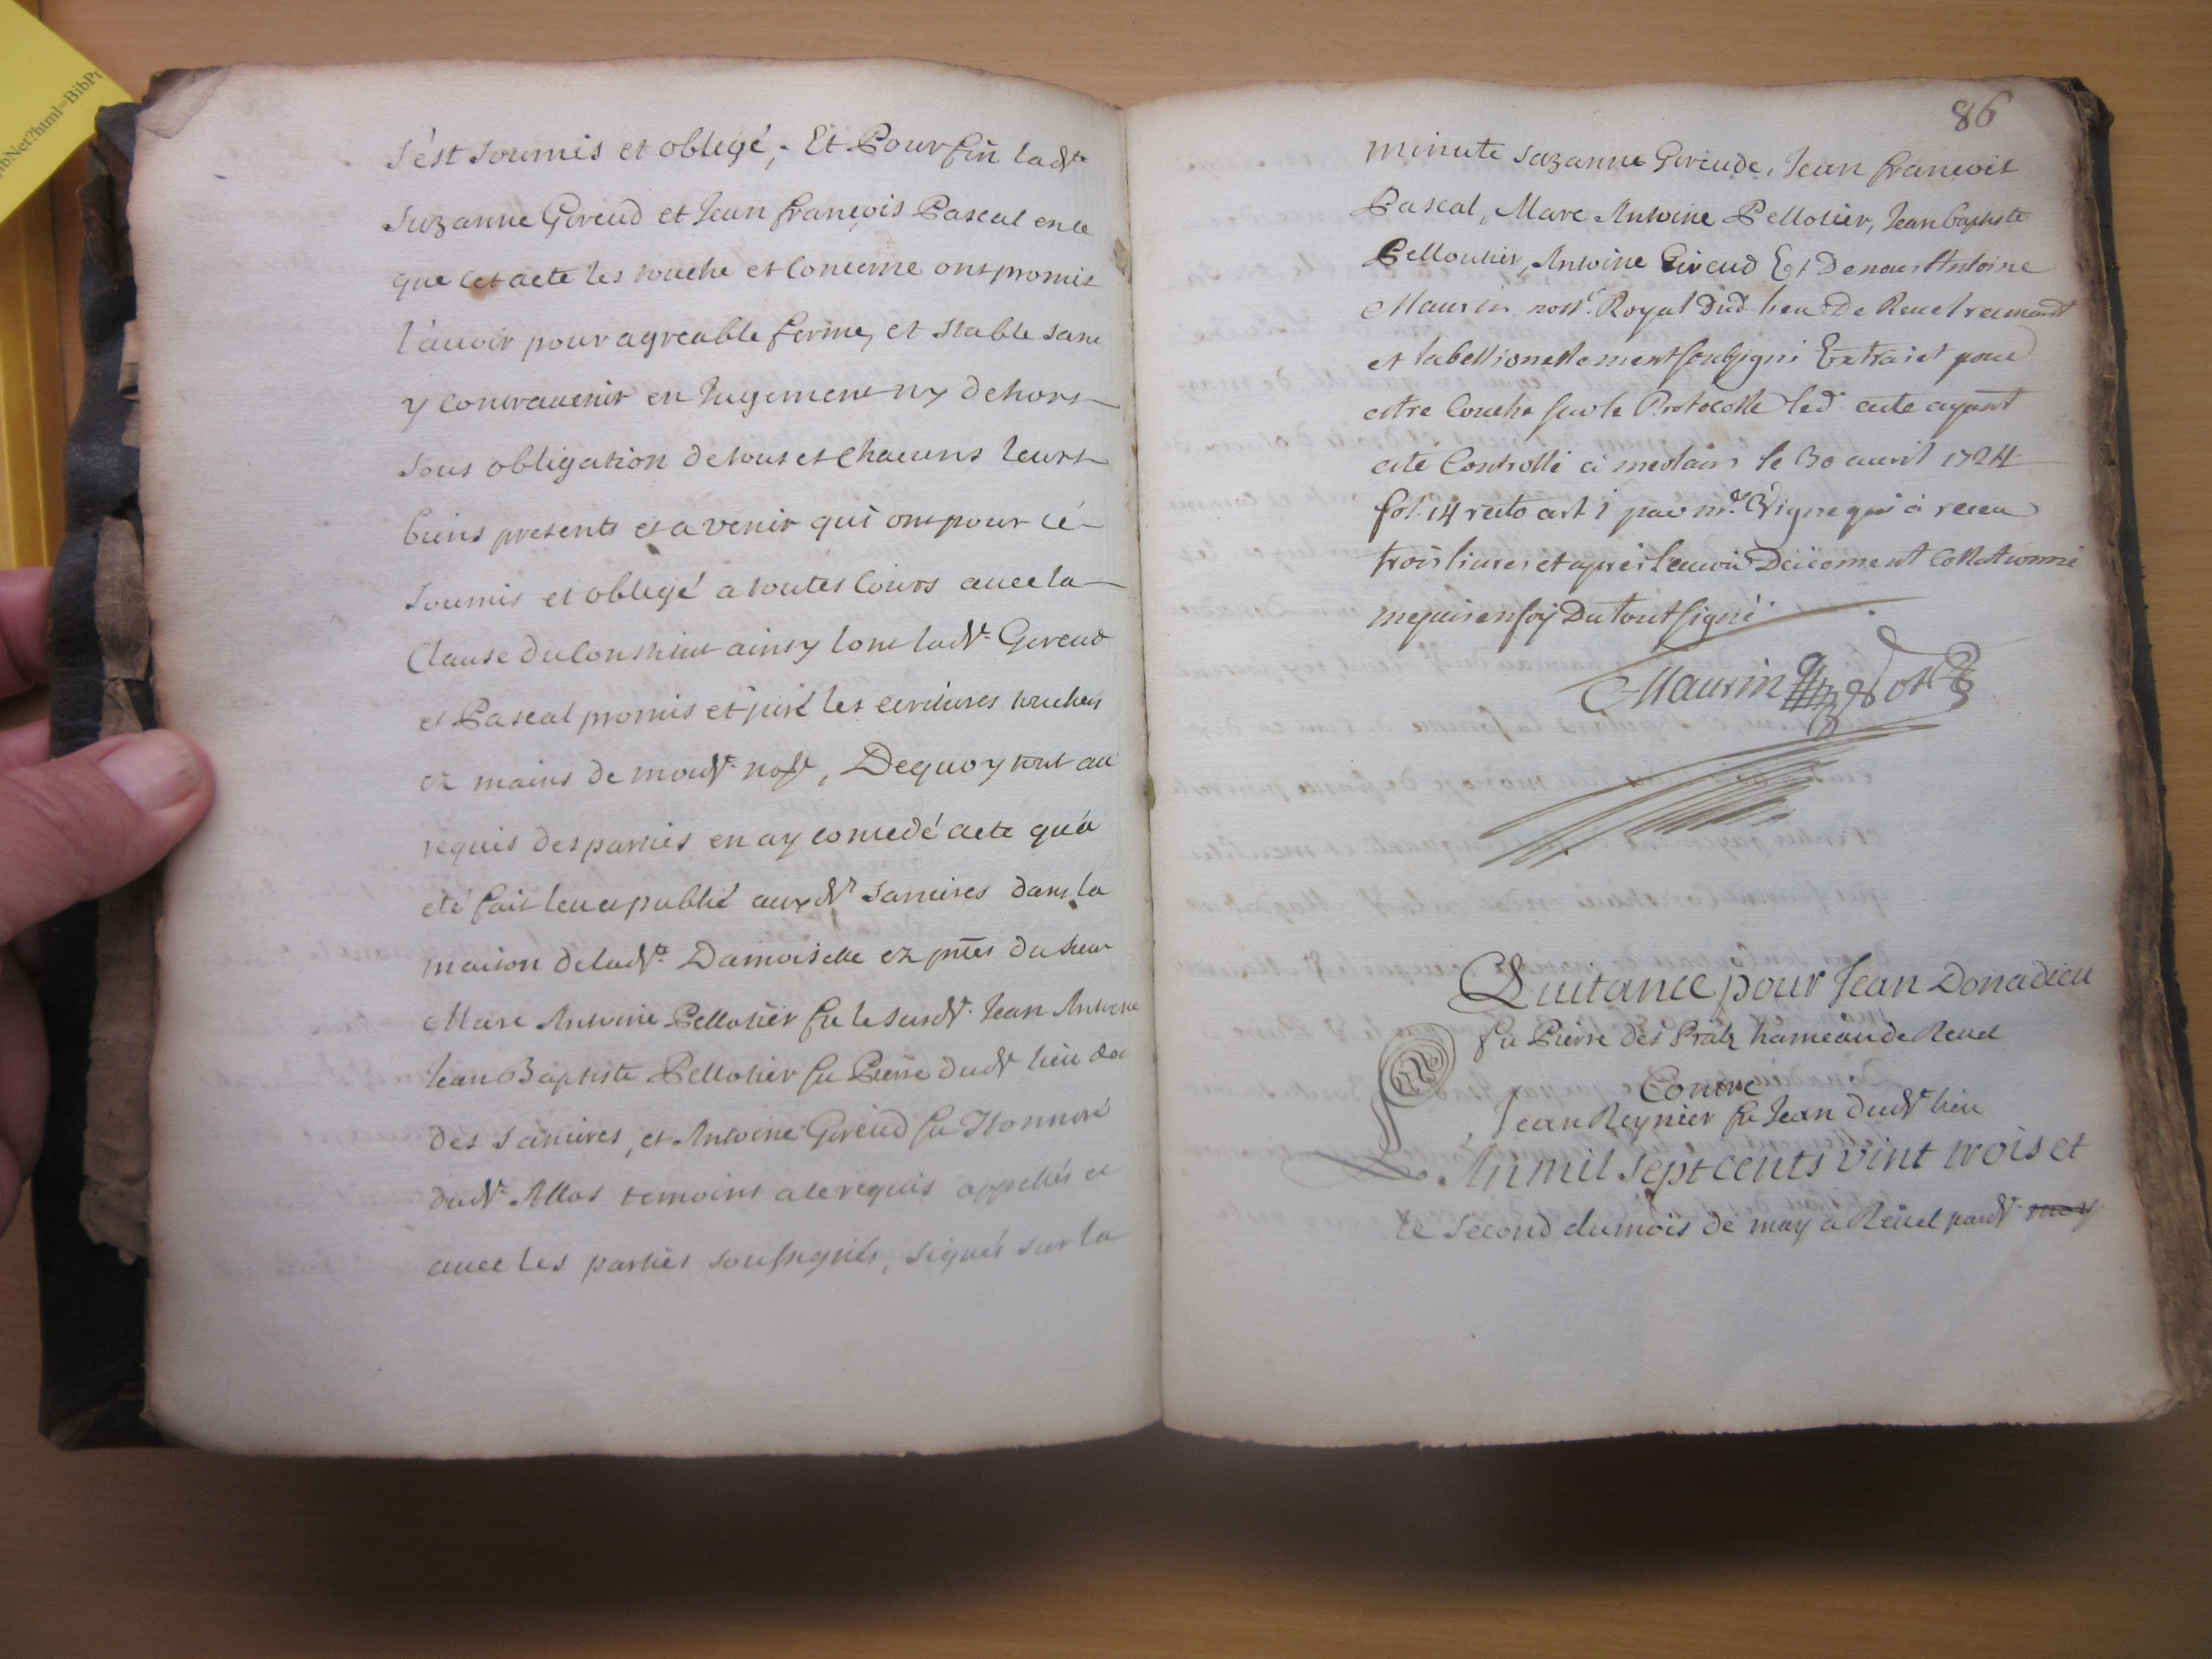 s'est soumis et obligé, Et Pour fin lad.te
Suzanne Gireud et Jean françois Pascal en ce
que cet acte les touche et concerne ont promis
l'auoir pour agreable ferme, et stable sans
y contrauenir en Jugement ny dehors
sous obligation de tous et chacuns leurs
biens presents et a venir qui ont pour cé
soumis et obligé a toutes Cours auec la
Clause du Constitut ainsy l'ont lad.e Gireud
et Pascal promis et juré les ecritures touchées
ez mains de moud. no.re, Dequoy tout au
requis des parties en ay concedé acte qu'a
eté fait leu et publié auxd. Sanieres dans la
maison de lad.te Damoiselle ez pntes du sieur
Marc Antoine Pellotier fu le susd. Jean Antoine
Jean Baptiste Pellotier fu Pierre dud. lieu
des Sanieres, et Antoine Gireud fu Honnoré
dud. Allos temoins a le requis appellés et
auec les parties soussignés, signés sur la
86
minute Suzanne Gireude, Jean françois
Pascal, Marc Antoine Pellotier, Jean baptiste
Pelloutier, Antoine Gireud Et De nous Antoine
Maurin nott.e Royal Dud. lieu De Reuel
et tabellionellement soussigné Extraict pour
estre Couché sur le Protocolle led. acte ayant
esté Controllé a meolans le 30 auril 1724
fol. 14 recto art 1 par m.e Vigne qui à receu
trois liures et apres l'auoir Deüement Collationné
me suis en foÿ Du tout signé
Maurin not
Quitance pour Jean Donadieu
fu Pierre des Pratz hameau de Reuel
Contre
Jean Reynier fu Jean dud. lieu
L'An mil sept cents vint trois et
le second du mois de may a Reüel pard. moy